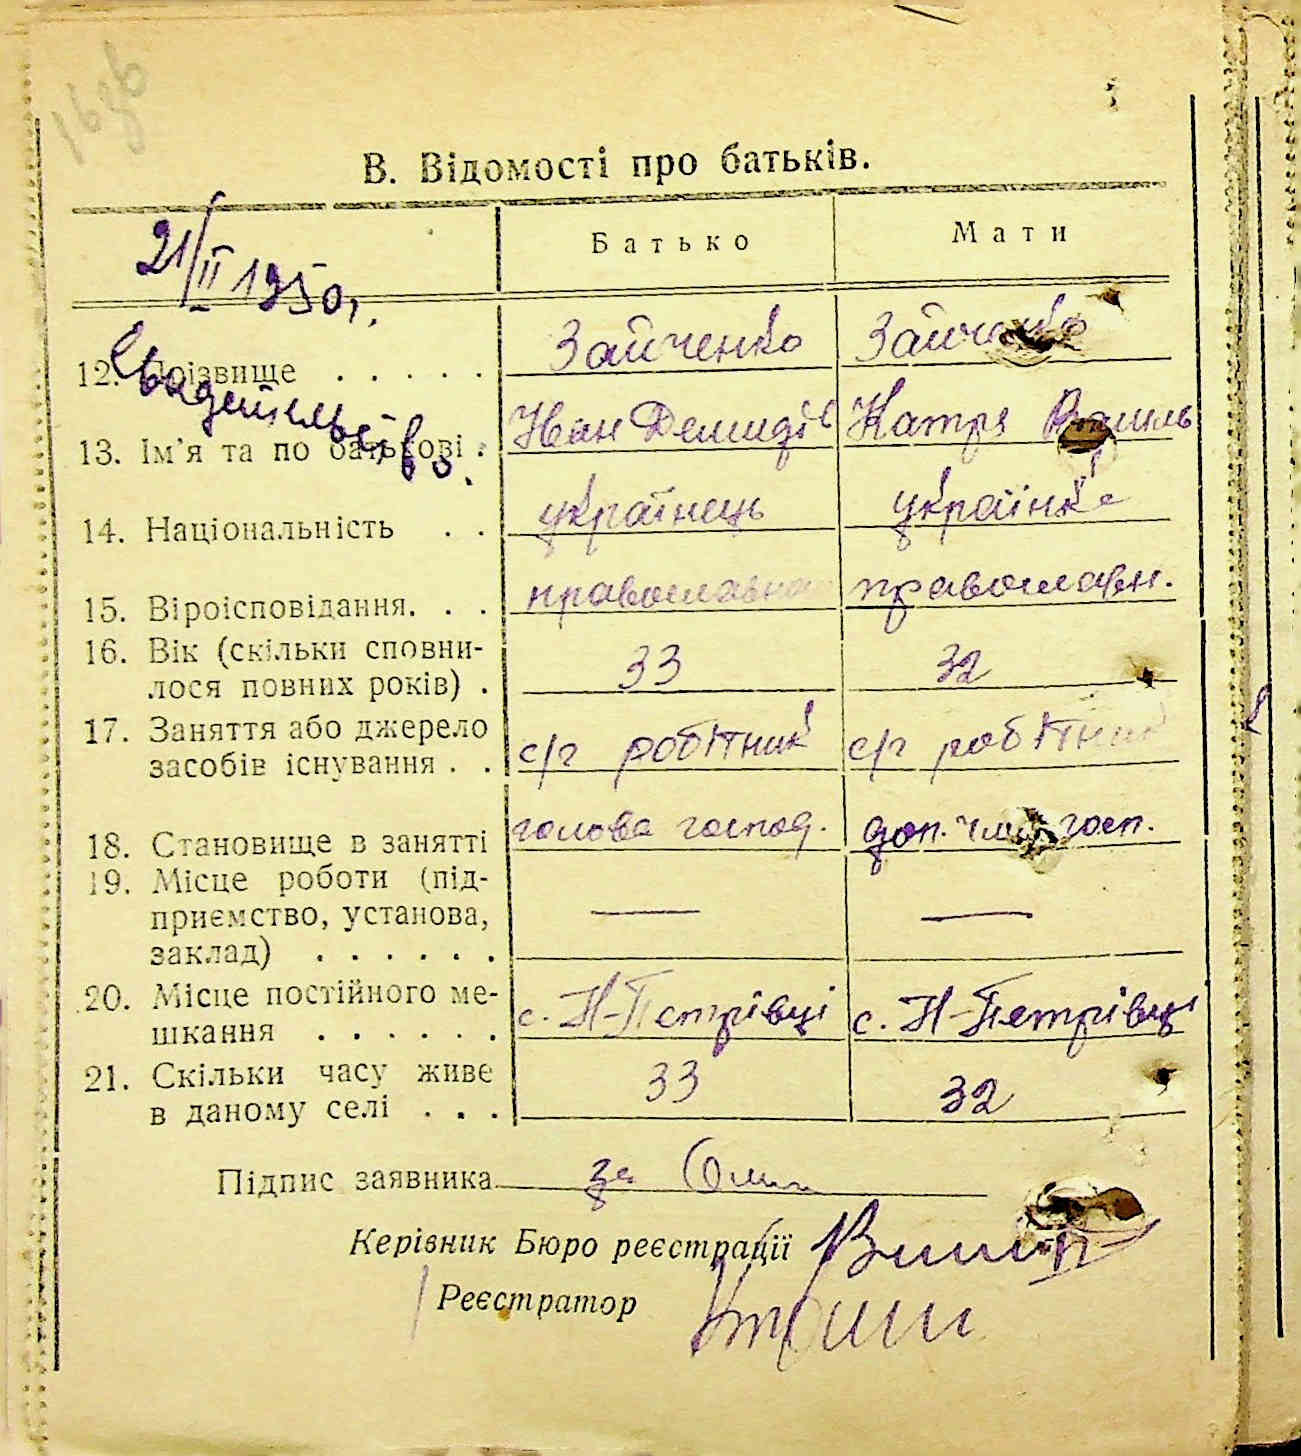 В. Відомості про батьків.
21/II 1950 г.
Батько Мати
Свидетельство.
12. Прізвище . . . . . Зайченко Зайченко
13. Ім'я та по батькові . Іван Демидів Катря Василь
14. Національність . . українець українка
15. Віроісповідання. . . православна православн.
16. Вік (скільки сповни-
лося повних років) . 33 32
17. Заняття або джерело
засобів існування . . с/г робітник с/г робітник
18. Становище в занятті голова господ. доп. член госп.
19. Місце роботи (під-
приємство, установа,
заклад) . . . . . . — —
20. Місце постійного ме-
шкання . . . . . . с. Н-Петрівці с. Н-Петрівці
21. Скільки часу живе
в даному селі . . . 33 32
Підпис заявника за
Керівник Бюро реєстрації
Реєстратор